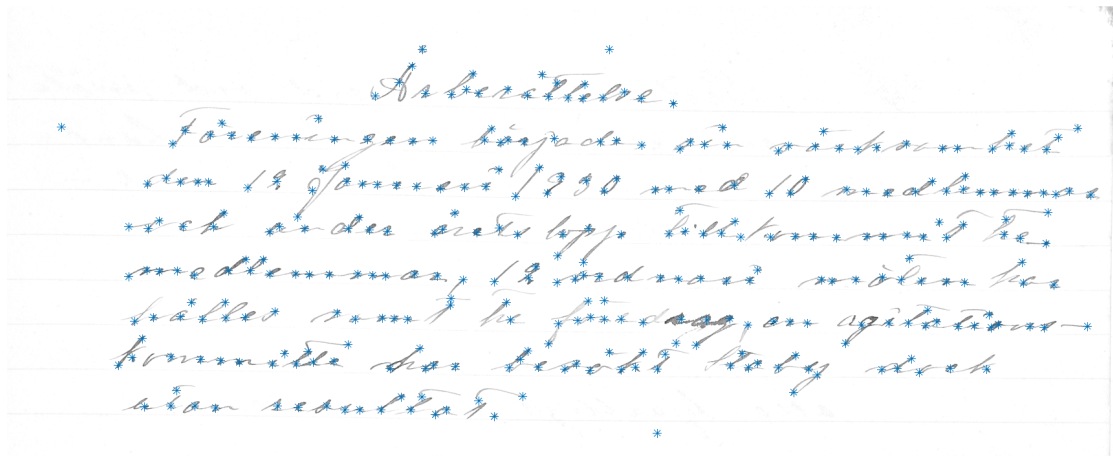 Årberättelse.
Föreningen började sin värksamhet
den 12 Januari 1930 med 10 medlemmar
och under årets lopp tillkommit tre
medlemmar, 12 ordnari möten har
hållits samt tre föredrag, en agitations-
kommitté har besökt Staby dock
utan resultat